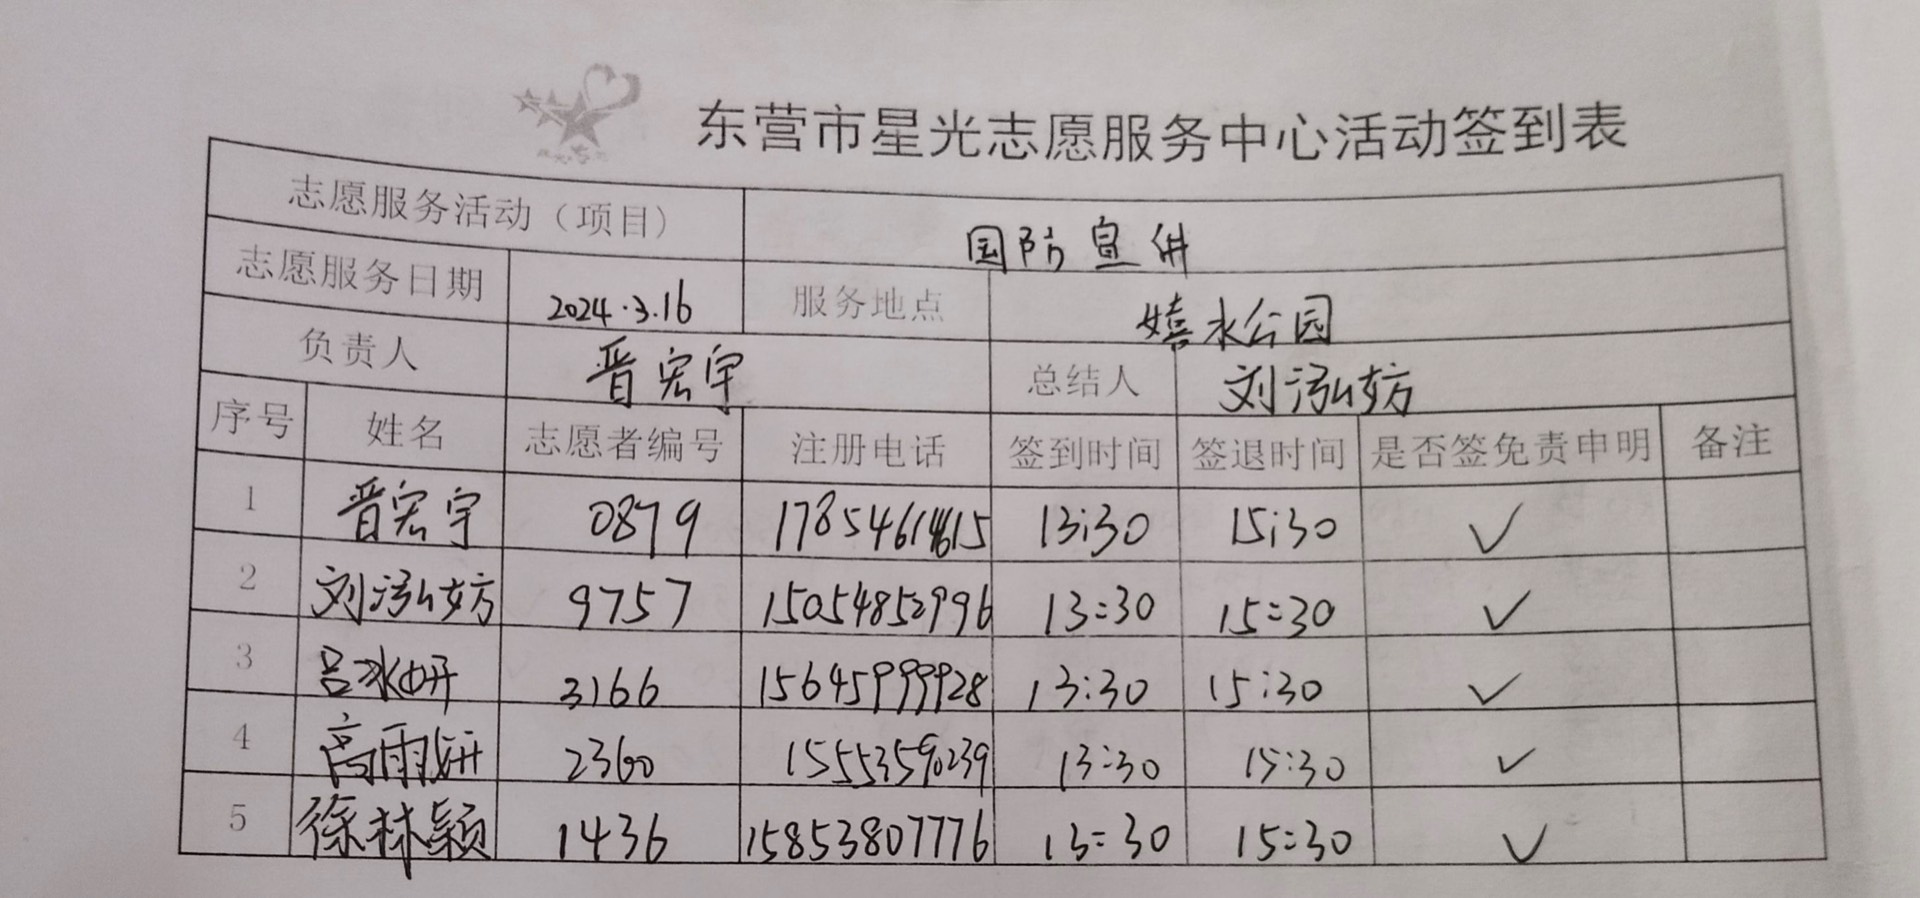 东营市星光志愿服务中心活动签到表
志愿服务活动（项目） 国防宣讲
志愿服务日期 2024.3.16 服务地点 嬉水公园
负责人 晋宏宇 总结人 刘泓妨
序号 姓名 志愿者编号 注册电话 签到时间 签退时间 是否签免责申明 备注
1 晋宏宇 0879 13:30 15:30 ✓
2 刘泓妨 9757 15054852996 13:30 15:30 ✓
3 吕冰妍 3166 15645999928 13:30 15:30 ✓
4 高雨妍 2360 15553590239 13:30 15:30 ✓
5 徐林颖 1436 15853807776 13:30 15:30 ✓